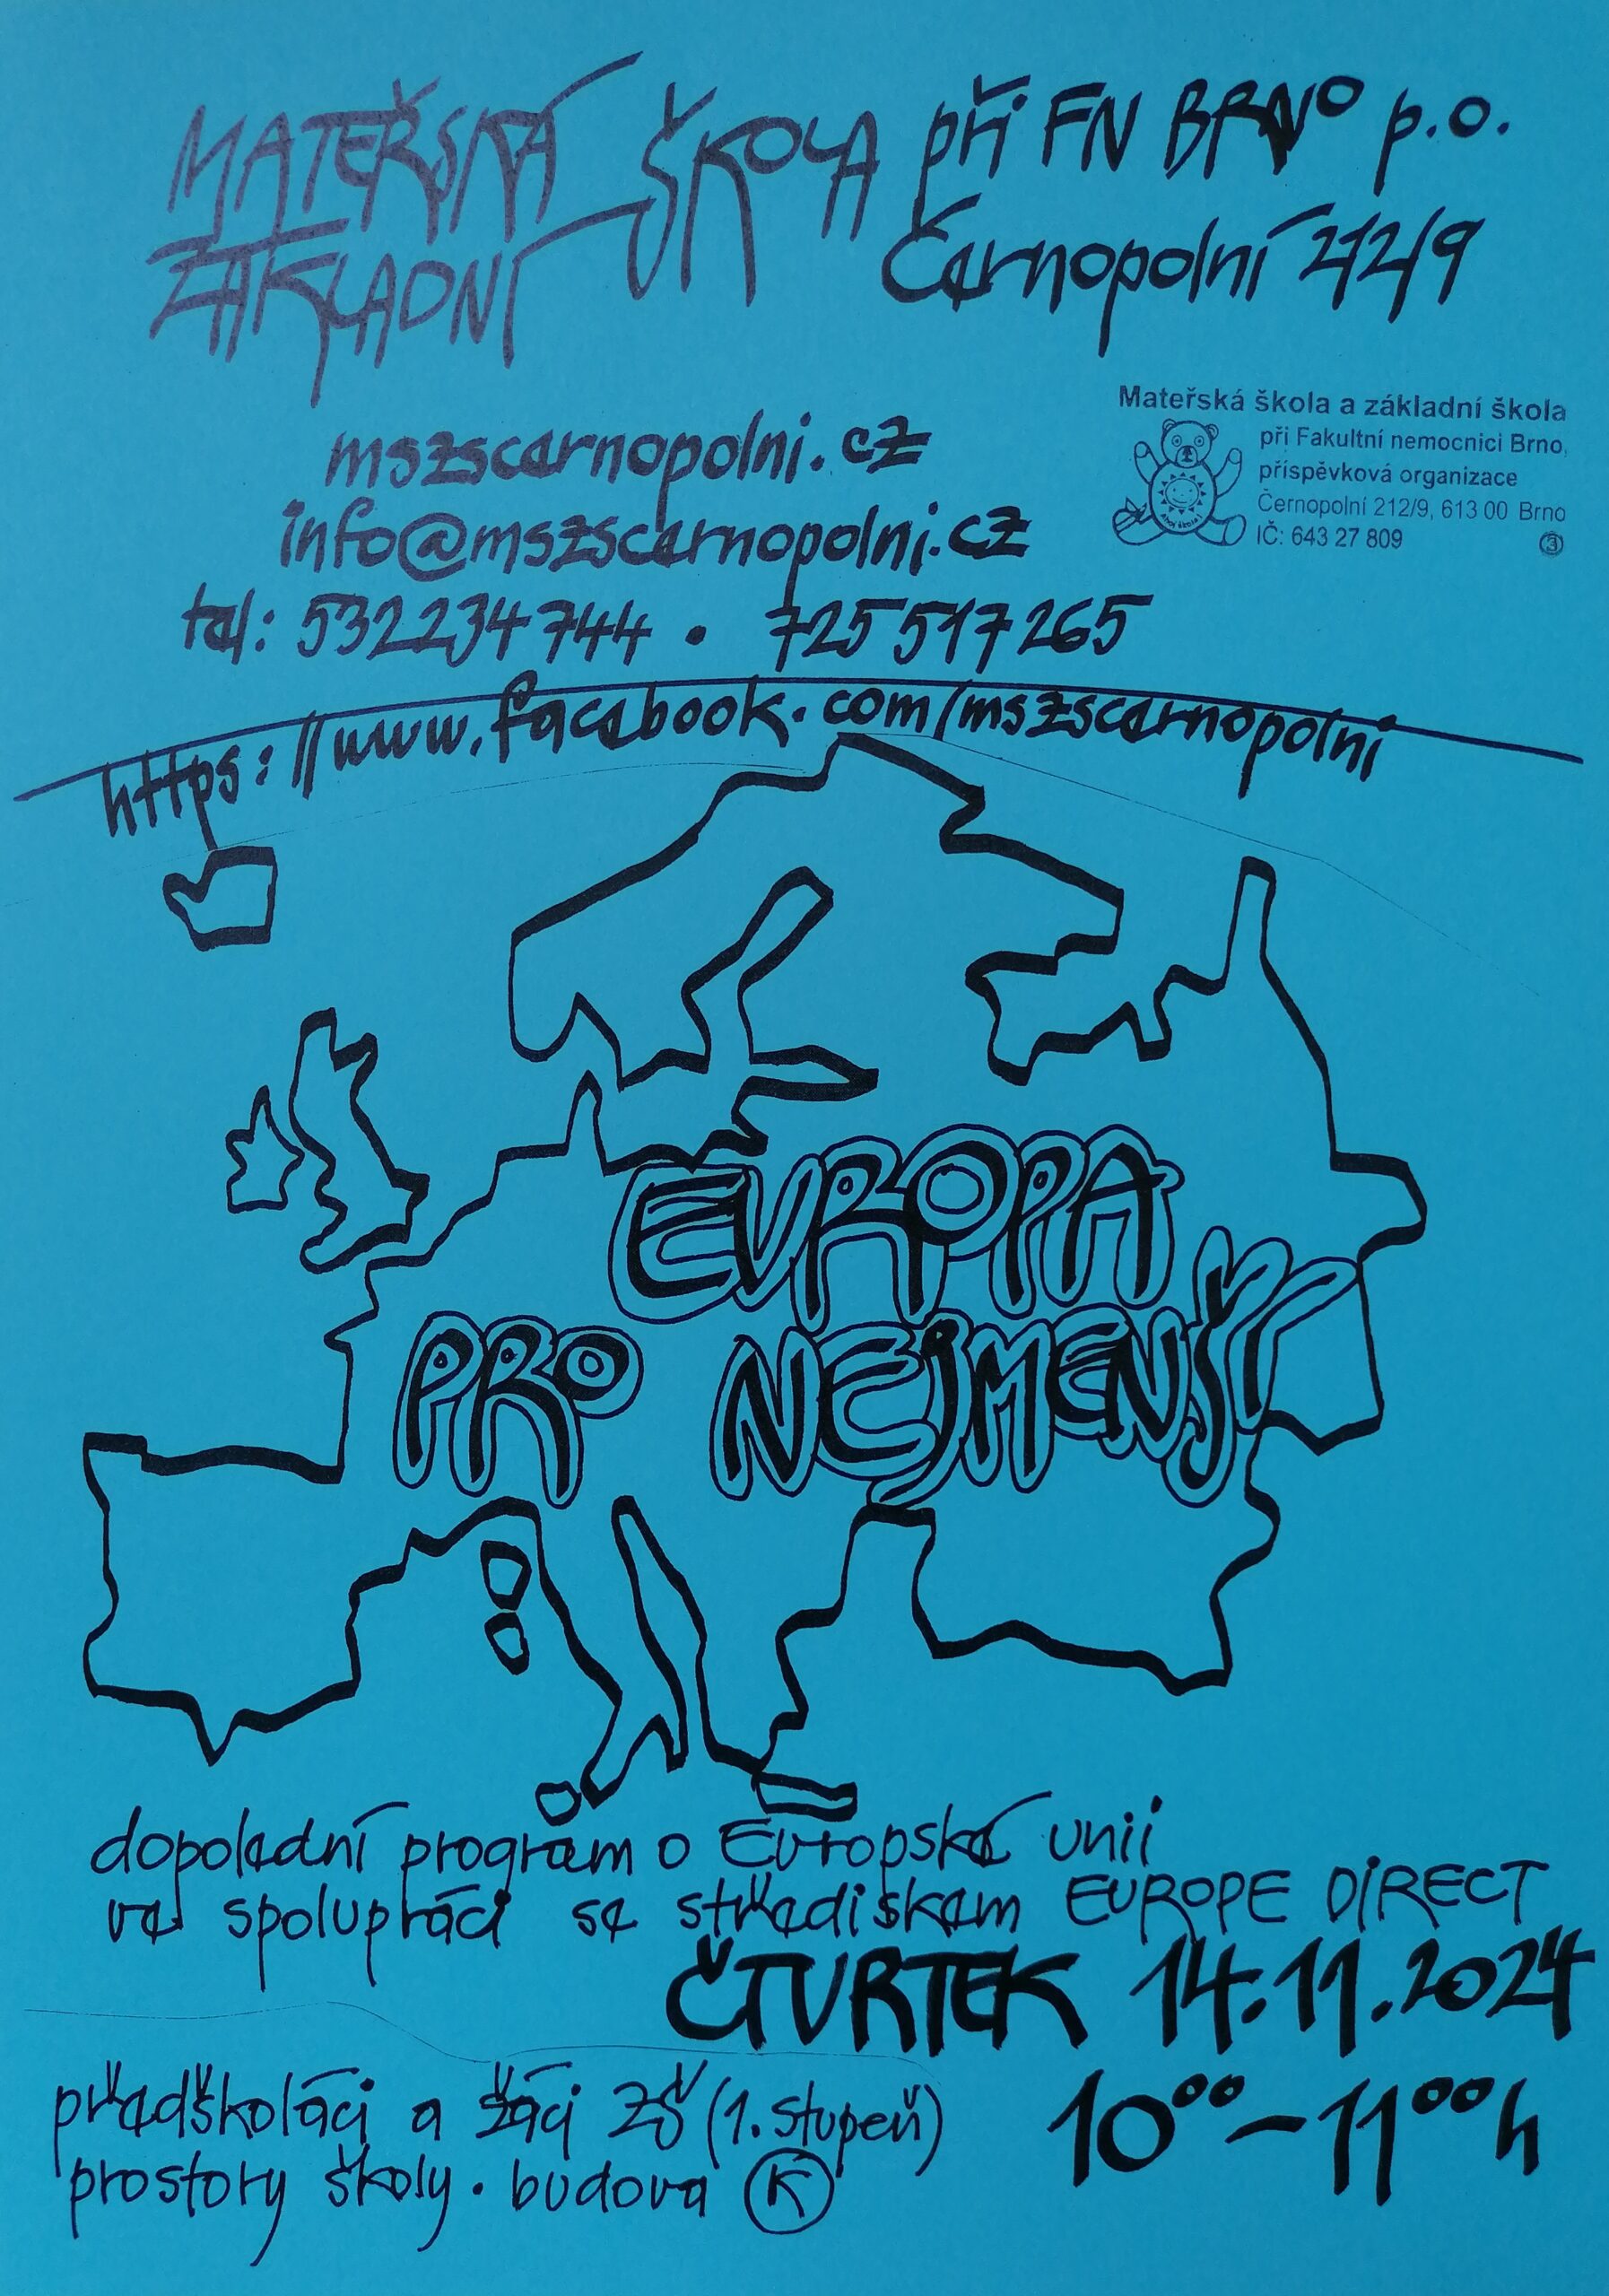 MATEŘSKÁ ŠKOLA při FN BRNO p.o.
ZÁKLADNÍ
Černopolní 212/9
mszscernopolni.cz
info@mszscernopolni.cz
tel: 532234744 • 725517265
https://www.facebook.com/mszscernopolni
Mateřská škola a základní škola
při Fakultní nemocnici Brno,
příspěvková organizace
Černopolní 212/9, 613 00 Brno
IČ: 643 27 809
3
EVROPA
PRO NEJMENŠÍ
dopolední program o Evropské unii
ve spolupráci se střediskem EUROPE DIRECT
ČTVRTEK 14.11.2024
10⁰⁰–11⁰⁰h
předškoláci a žáci ZŠ (1. stupeň)
prostory školy • budova K